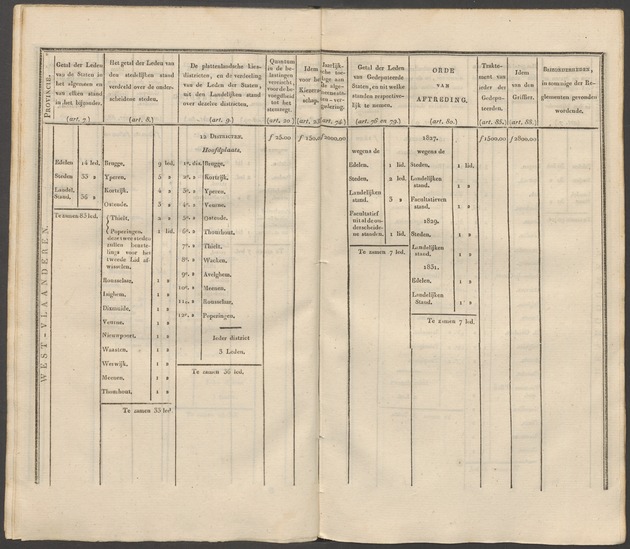 PROVINCIE.
WEST-VLAANDEREN.
Getal der Leden
van de Staten in
het algemeen en
van elken stand
in het bijzonder.
(art. 7.)
Edelen 14 led.
Steden 33 »
Landel. Stand. 36 »
Te zamen 83 led.
Het getal der Leden van
den stedelijken stand
verdeeld over de onder-
scheidene steden.
(art. 8.)
Brugge, 9 led.
Yperen, 5 »
Kortrijk, 4 »
Ostende, 3 »
Thielt,
Poperingen, 1 lid.
deze twee steden
zullen beurte-
lings voor het
tweede Lid af-
wisselen.
Rousselaer, 1 »
Inghem, 1 »
Dixmuide, 1 »
Veurne, 1 »
Nieuwpoort, 1 »
Waasten, 1 »
Werwijk, 1 »
Meenen, 1 »
Thourhout, 1 »
Te zamen 33 led.
De plattelandsche Kies-
districten, en de verdeeling
van de Leden der Staten,
uit den Landelijken stand
over dezelve districten.
(art. 9.)
12 DISTRICTEN.
Hoofdplaats.
1e. dis. Brugge.
2e. » Kortrijk.
3e. » Yperen.
4e. » Veurne.
5e. » Ostende.
6e. » Thourhout.
7e. » Thielt.
8e. » Wacken.
9e. » Avelghem.
10e. » Meenen.
11e. » Rousselaer.
12e. » Poperingen.
Ieder district
3 Leden.
Te zamen 36 led.
Quantum
in de be-
lastingen
vereischt,
voor de be-
voegdheid
tot het
stemregt.
(art. 20.)
f 25.00
Idem
voor het
Kiezer-
schap.
f 150.00
Jaarlijk-
sche toe-
lage aan
de alge-
meene staten-
ver-
gadering.
(art. 74.)
f 2000.00
Getal der Leden
van Gedeputeerde
Staten, en uit welke
standen respective-
lijk te nemen.
(art. 76 en 79.)
wegens de
Edelen. 1 lid.
Steden. 2 led.
Landelijken
stand. 3 »
Facultatief
uit al de on-
derscheide-
ne standen. 1 lid.
Te zamen 7 led.
ORDE
VAN
AFTREDING.
(art. 80.)
1827.
wegens de
Steden. 1 lid.
Landelijken
stand. 1 »
Facultatieven
stand. 1 »
1829.
Steden. 1 »
Landelijken
stand. 1 »
1831.
Edelen. 1 »
Landelijken
Stand. 1 »
Te zamen 7 led.
Trakte-
ment van
ieder der
Gedepu-
teerden.
(art. 85.)
f 1500.00
Idem
van den
Griffier.
(art. 88.)
f 2800.00
BIJZONDERHEDEN,
in sommige der Re-
glementen gevonden
wordende.